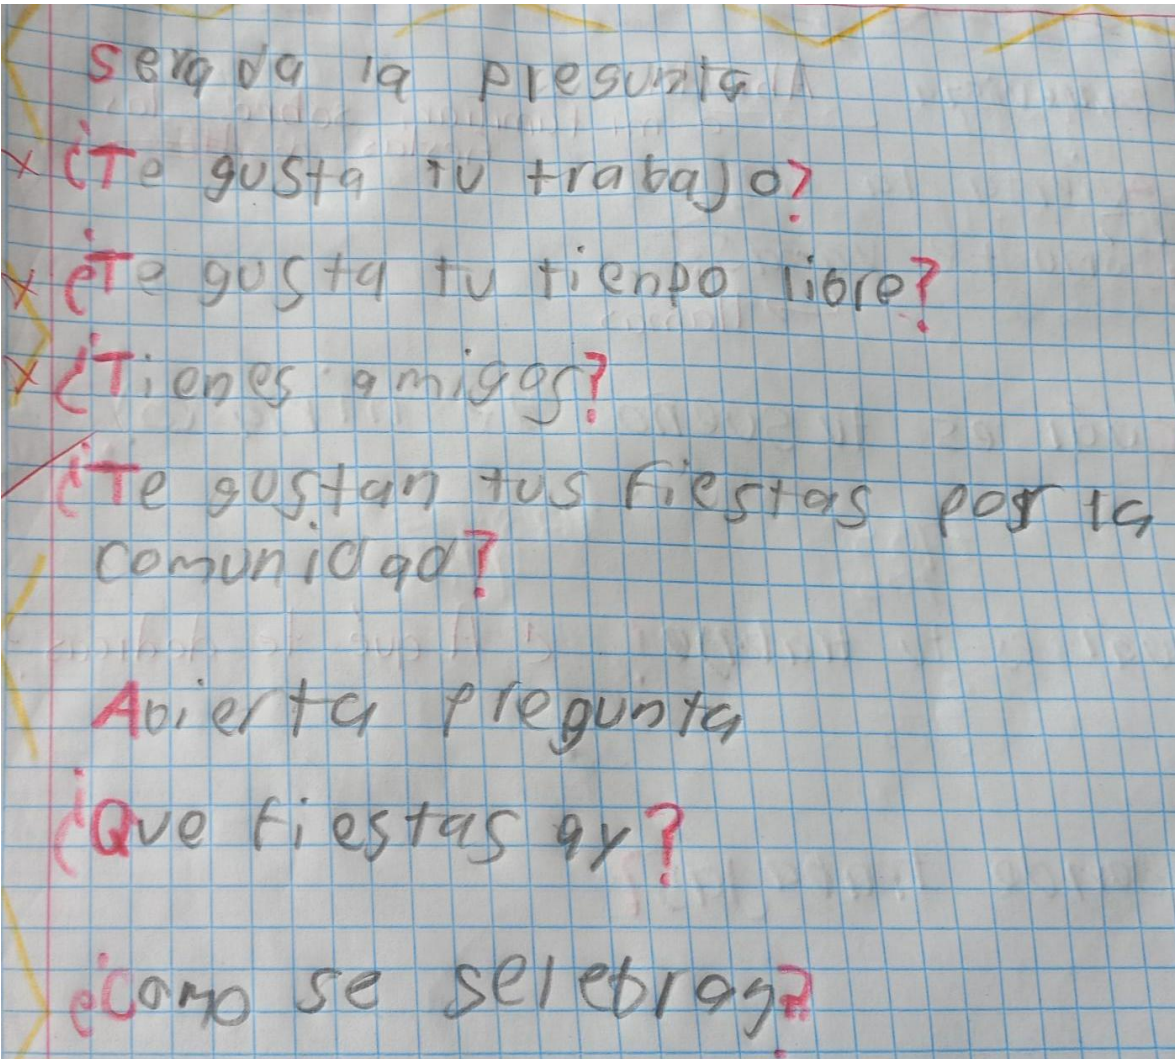 Serada la pregunta
¿Te gusta tu trabajo?
¿Te gusta tu tienpo libre?
¿Tienes amigos?
¿Te gustan tus fiestas por la
comunidad?
Abierta pregunta
¿Que fiestas ay?
¿Como se selebran?